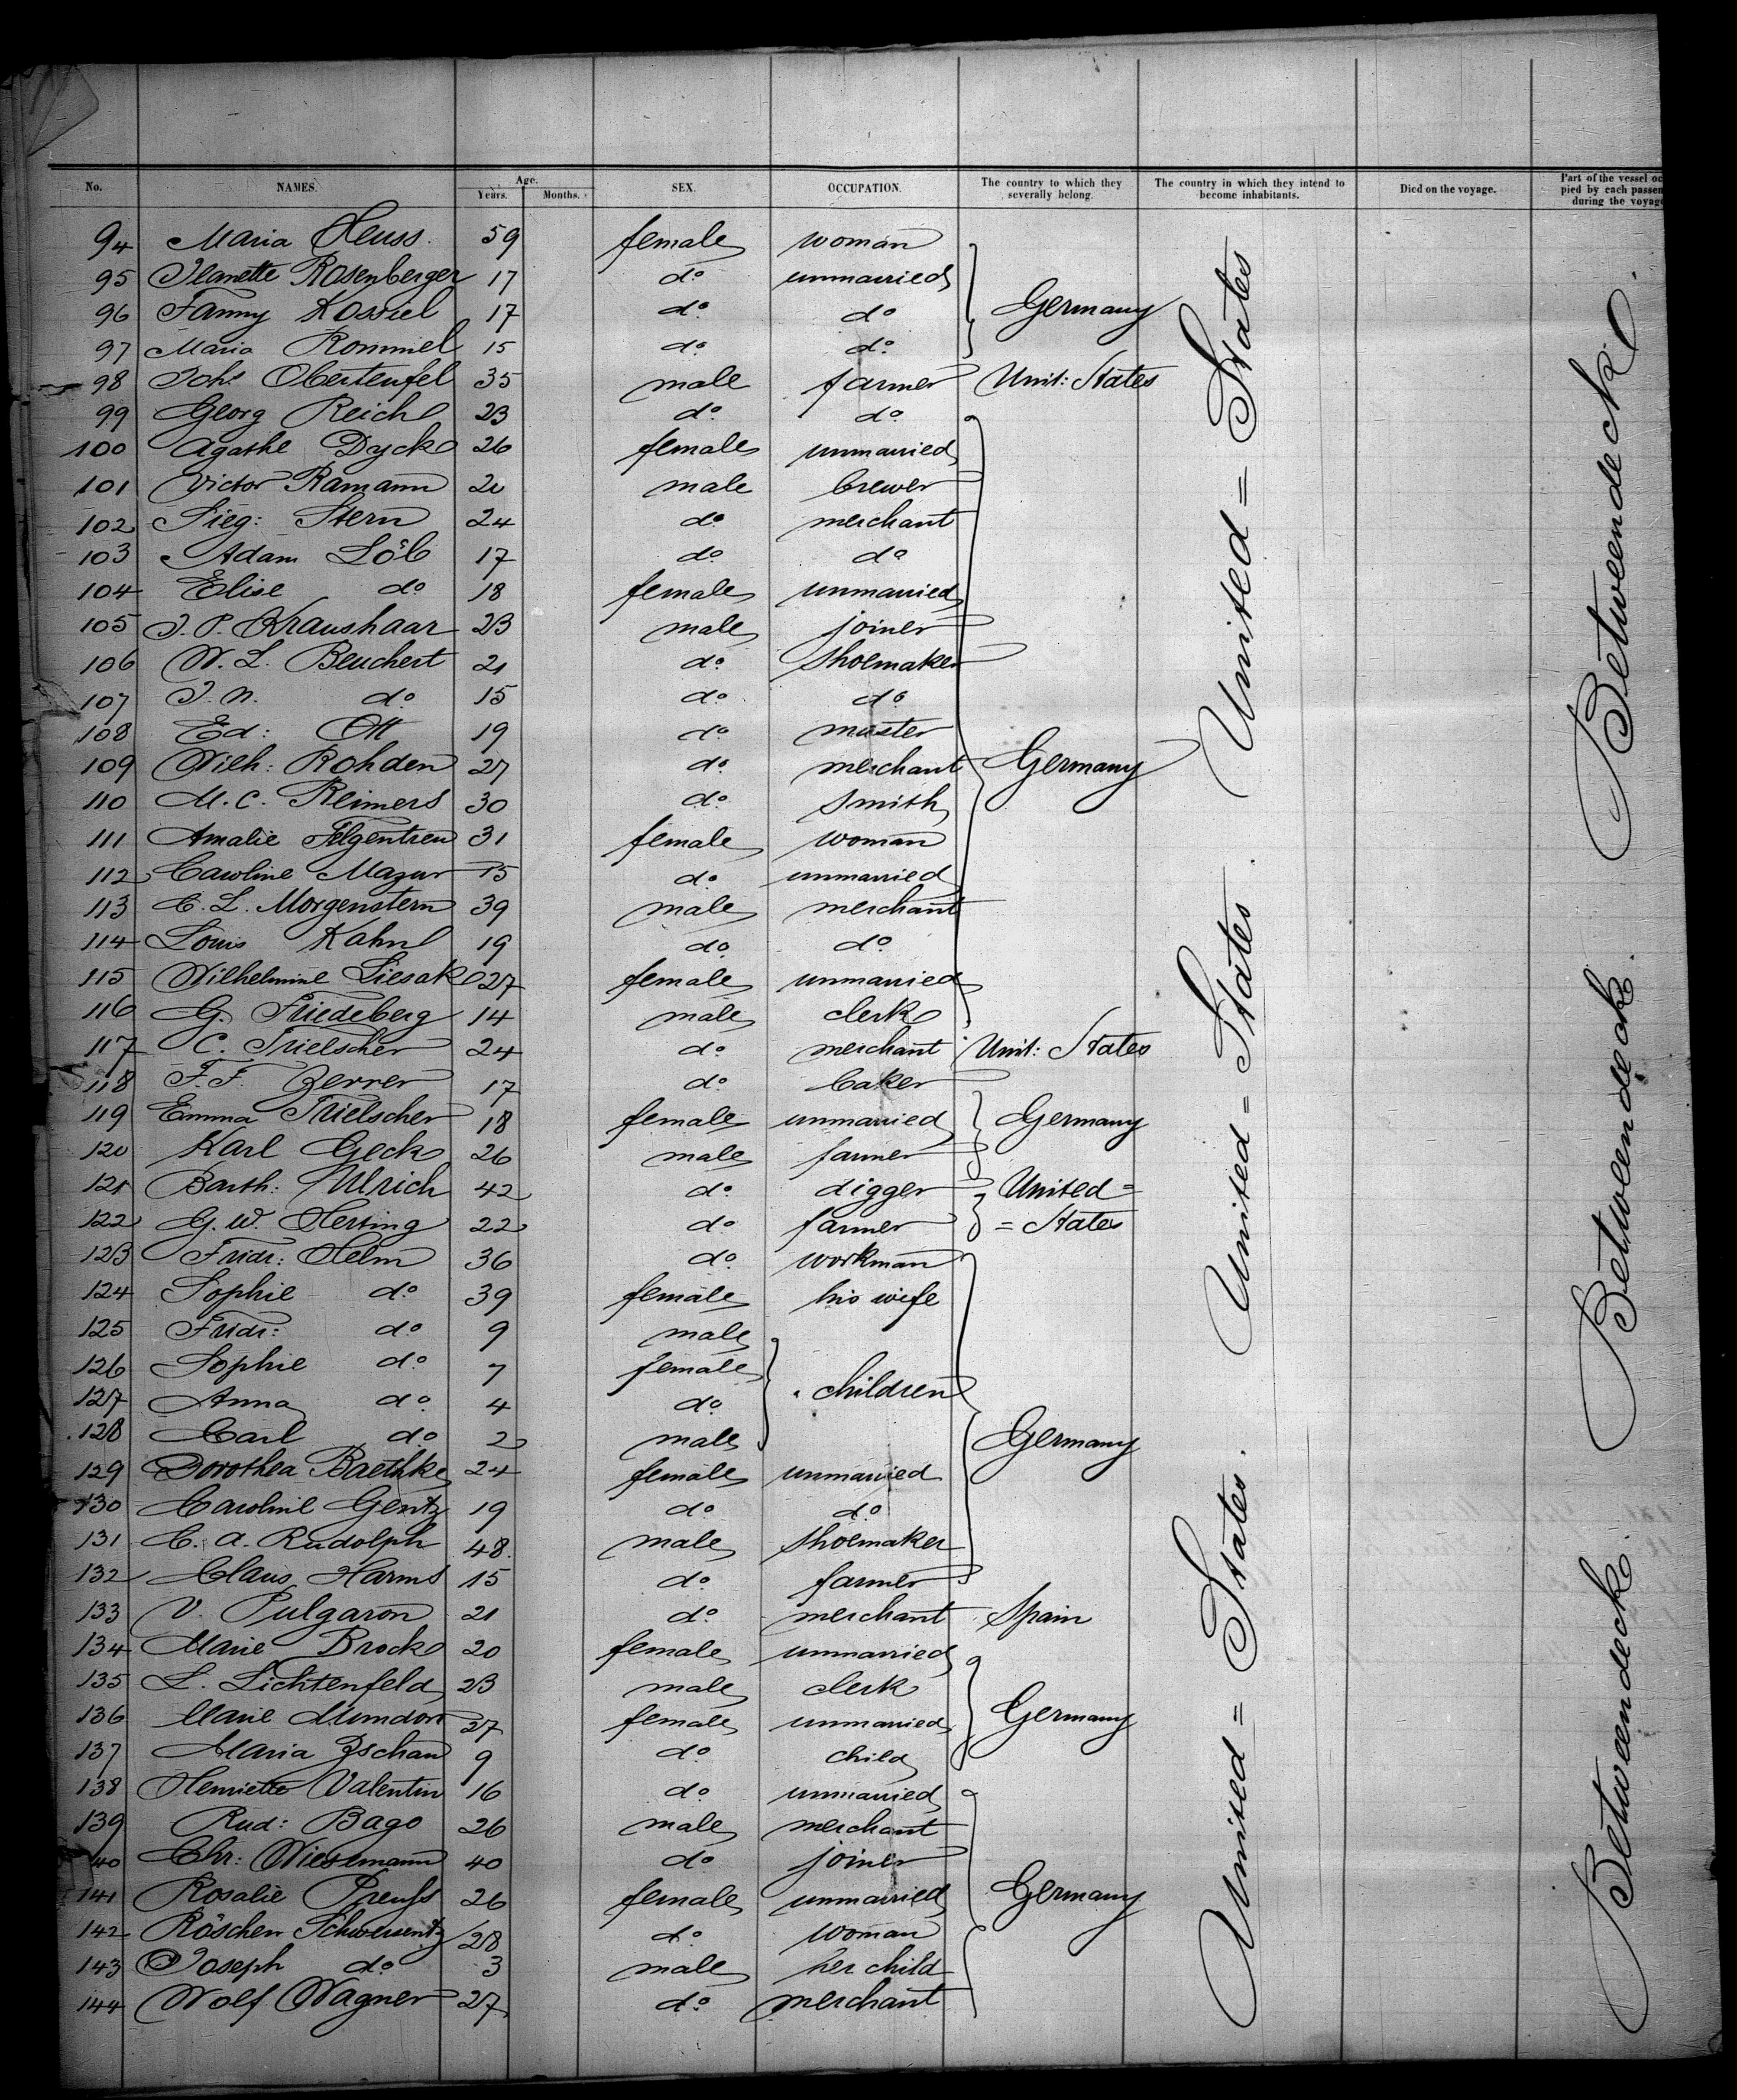 No. NAMES. Age. Years. Months. SEX. OCCUPATION. The country to which they severally belong. The country in which they intend to become inhabitants. Died on the voyage. Part of the vessel oc pied by each passen during the voyage
94 Maria Heuss. 59 female woman
95 Jeanette Rosenberger 17 do unmarried
96 Fanny Kossiel 17 do do Germany
97 Maria Rommel 15 do do
98 Johs Obertenfel 35 male farmer Unit: States
99 Georg Reich 23 do do
100 Agathe Dyck 26 female unmarried
101 Victor Ramann 20 male brewer
102 Sieg: Stern 24 do merchant
103 Adam Löb 17 do do
104 Elise do 18 female unmarried
105 J. P. Kraushaar 23 male joiner
106 W. L. Beuchert 21 do shoemaker
107 J. N. do 15 do do
108 Ed: Ott 19 do master
109 Wilh: Rohden 27 do merchant Germany
110 M. C. Reimers 30 do smith
111 Amalie Felgentreu 31 female woman
112 Caroline Mazur 15 do unmarried
113 C. L. Morgenstern 39 male merchant
114 Louis Kahn 19 do do
115 Wilhelmine Liesak 27 female unmarried
116 G. Friedeberg 14 male clerk
117 C. Trielscher 24 do merchant Unit: States
118 F. F. Zerrer 17 do baker
119 Emma Trielscher 18 female unmarried Germany
120 Karl Geck 26 male farmer
121 Barth: Ulrich 42 do digger United =
122 G. W. Herting 22 do farmer = States
123 Fridr: Helm 36 do workman
124 Sophie do 39 female his wife
125 Fridr: do 9 male
126 Sophie do 7 female
127 Anna do 4 do children
128 Carl do 2 male Germany
129 Dorothea Baethke 24 female unmarried
130 Caroline Gentz 19 do do
131 C. A. Rudolph 48. male shoemaker
132 Claus Harms 15 do farmer
133 V. Pulgaron 21 do merchant Spain
134 Marie Brock 20 female unmarried
135 L. Lichtenfeld 23 male clerk
136 Marie Mumdorr 27 female unmarried Germany
137 Maria Zschau 9 do child
138 Henriette Valentin 16 do unmarried
139 Rud: Bago 26 male merchant
40 Chr: Wiesemann 40 do joiner
141 Rosalie Preuss 26 female unmarried Germany
142 Röschen Schwersentz 28 do woman
143 Joseph do 3 male her child
144 Wolf Wagner 27 do merchant
United = States. United = States. United = States
Betweendeck. Betweendeck. Betweendeck.